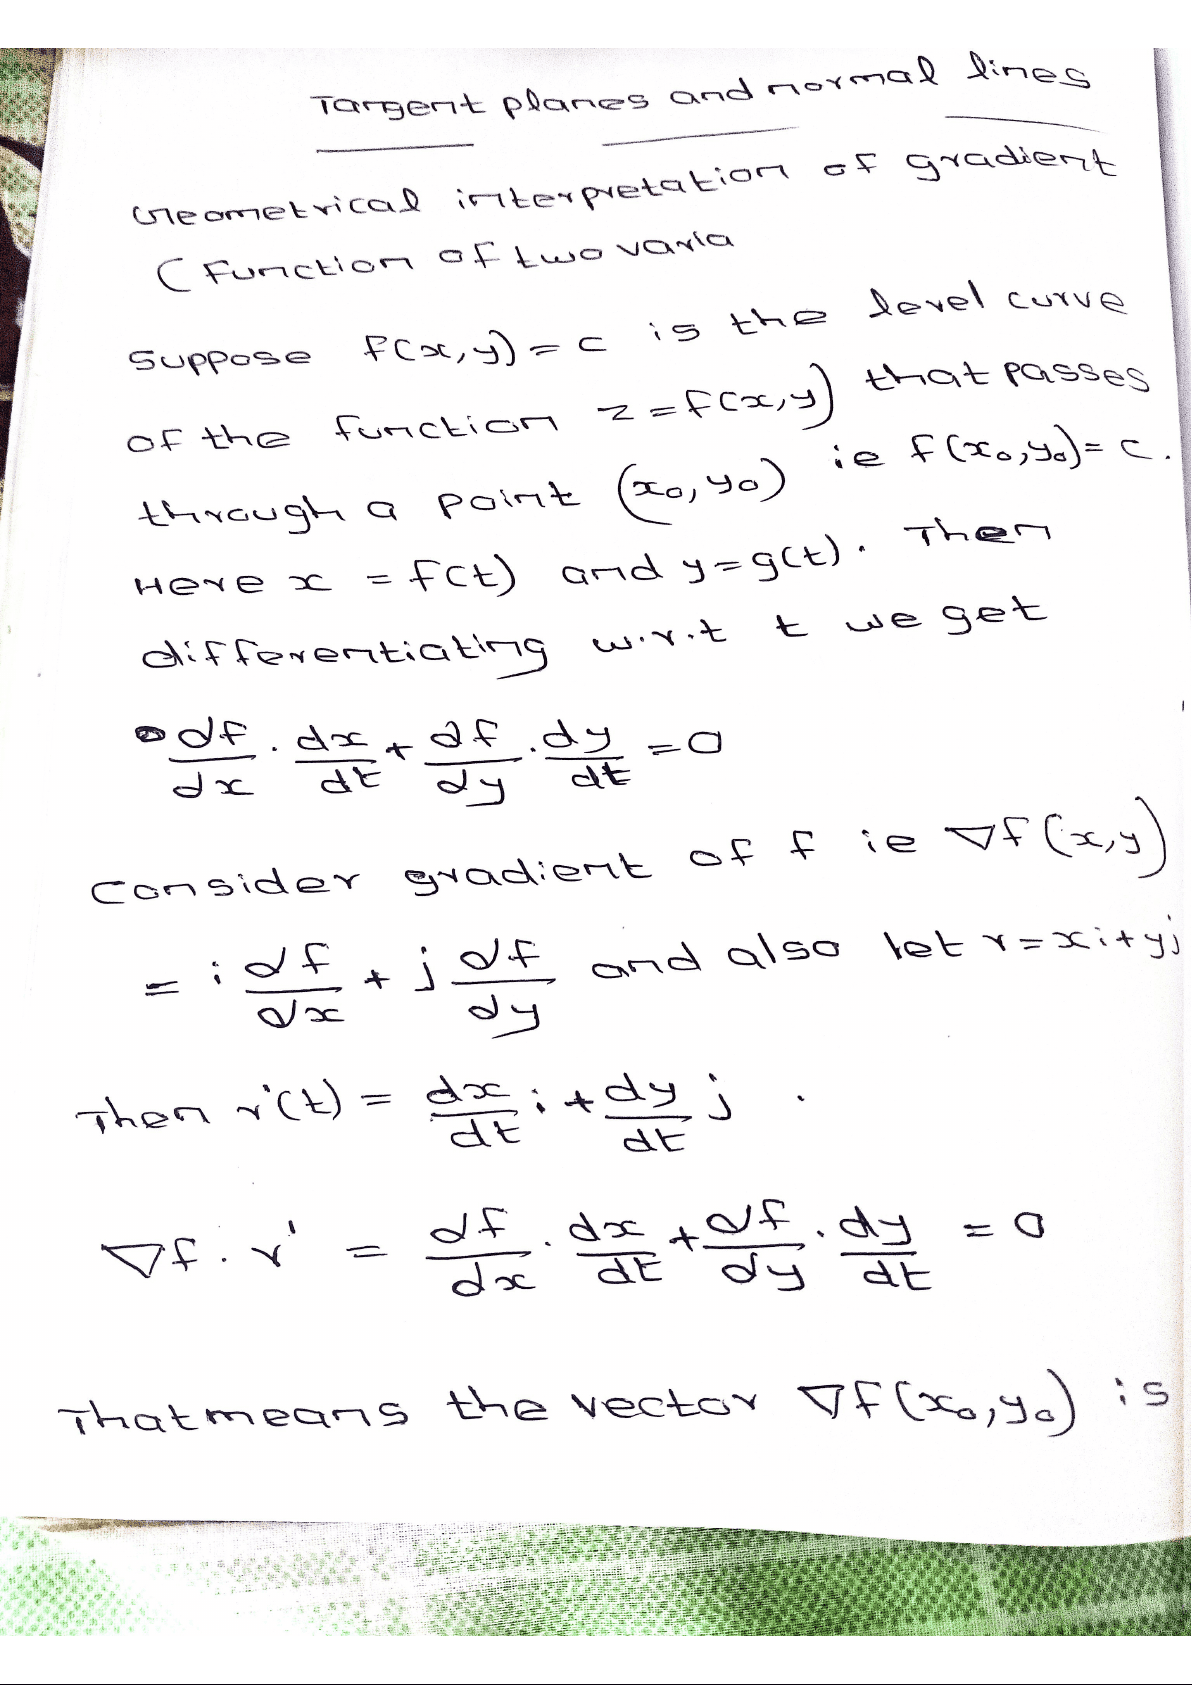 Tangent planes and normal lines
Geometrical interpretation of gradient
( Function of two varia
Suppose f(x,y) = c is the level curve
of the function z = f(x,y) that passes
through a point (x₀, y₀) ie f(x₀,y₀) = c.
Here x = f(t) and y = g(t). Then
differentiating w.r.t t we get
∂f/∂x . dx/dt + ∂f/∂y . dy/dt = 0
Consider gradient of f ie ∇f(x,y)
= i ∂f/∂x + j ∂f/∂y and also let r = xi + yj
Then r'(t) = dx/dt i + dy/dt j .
∇f . r' = ∂f/∂x . dx/dt + ∂f/∂y . dy/dt = 0
That means the vector ∇f(x₀,y₀) is